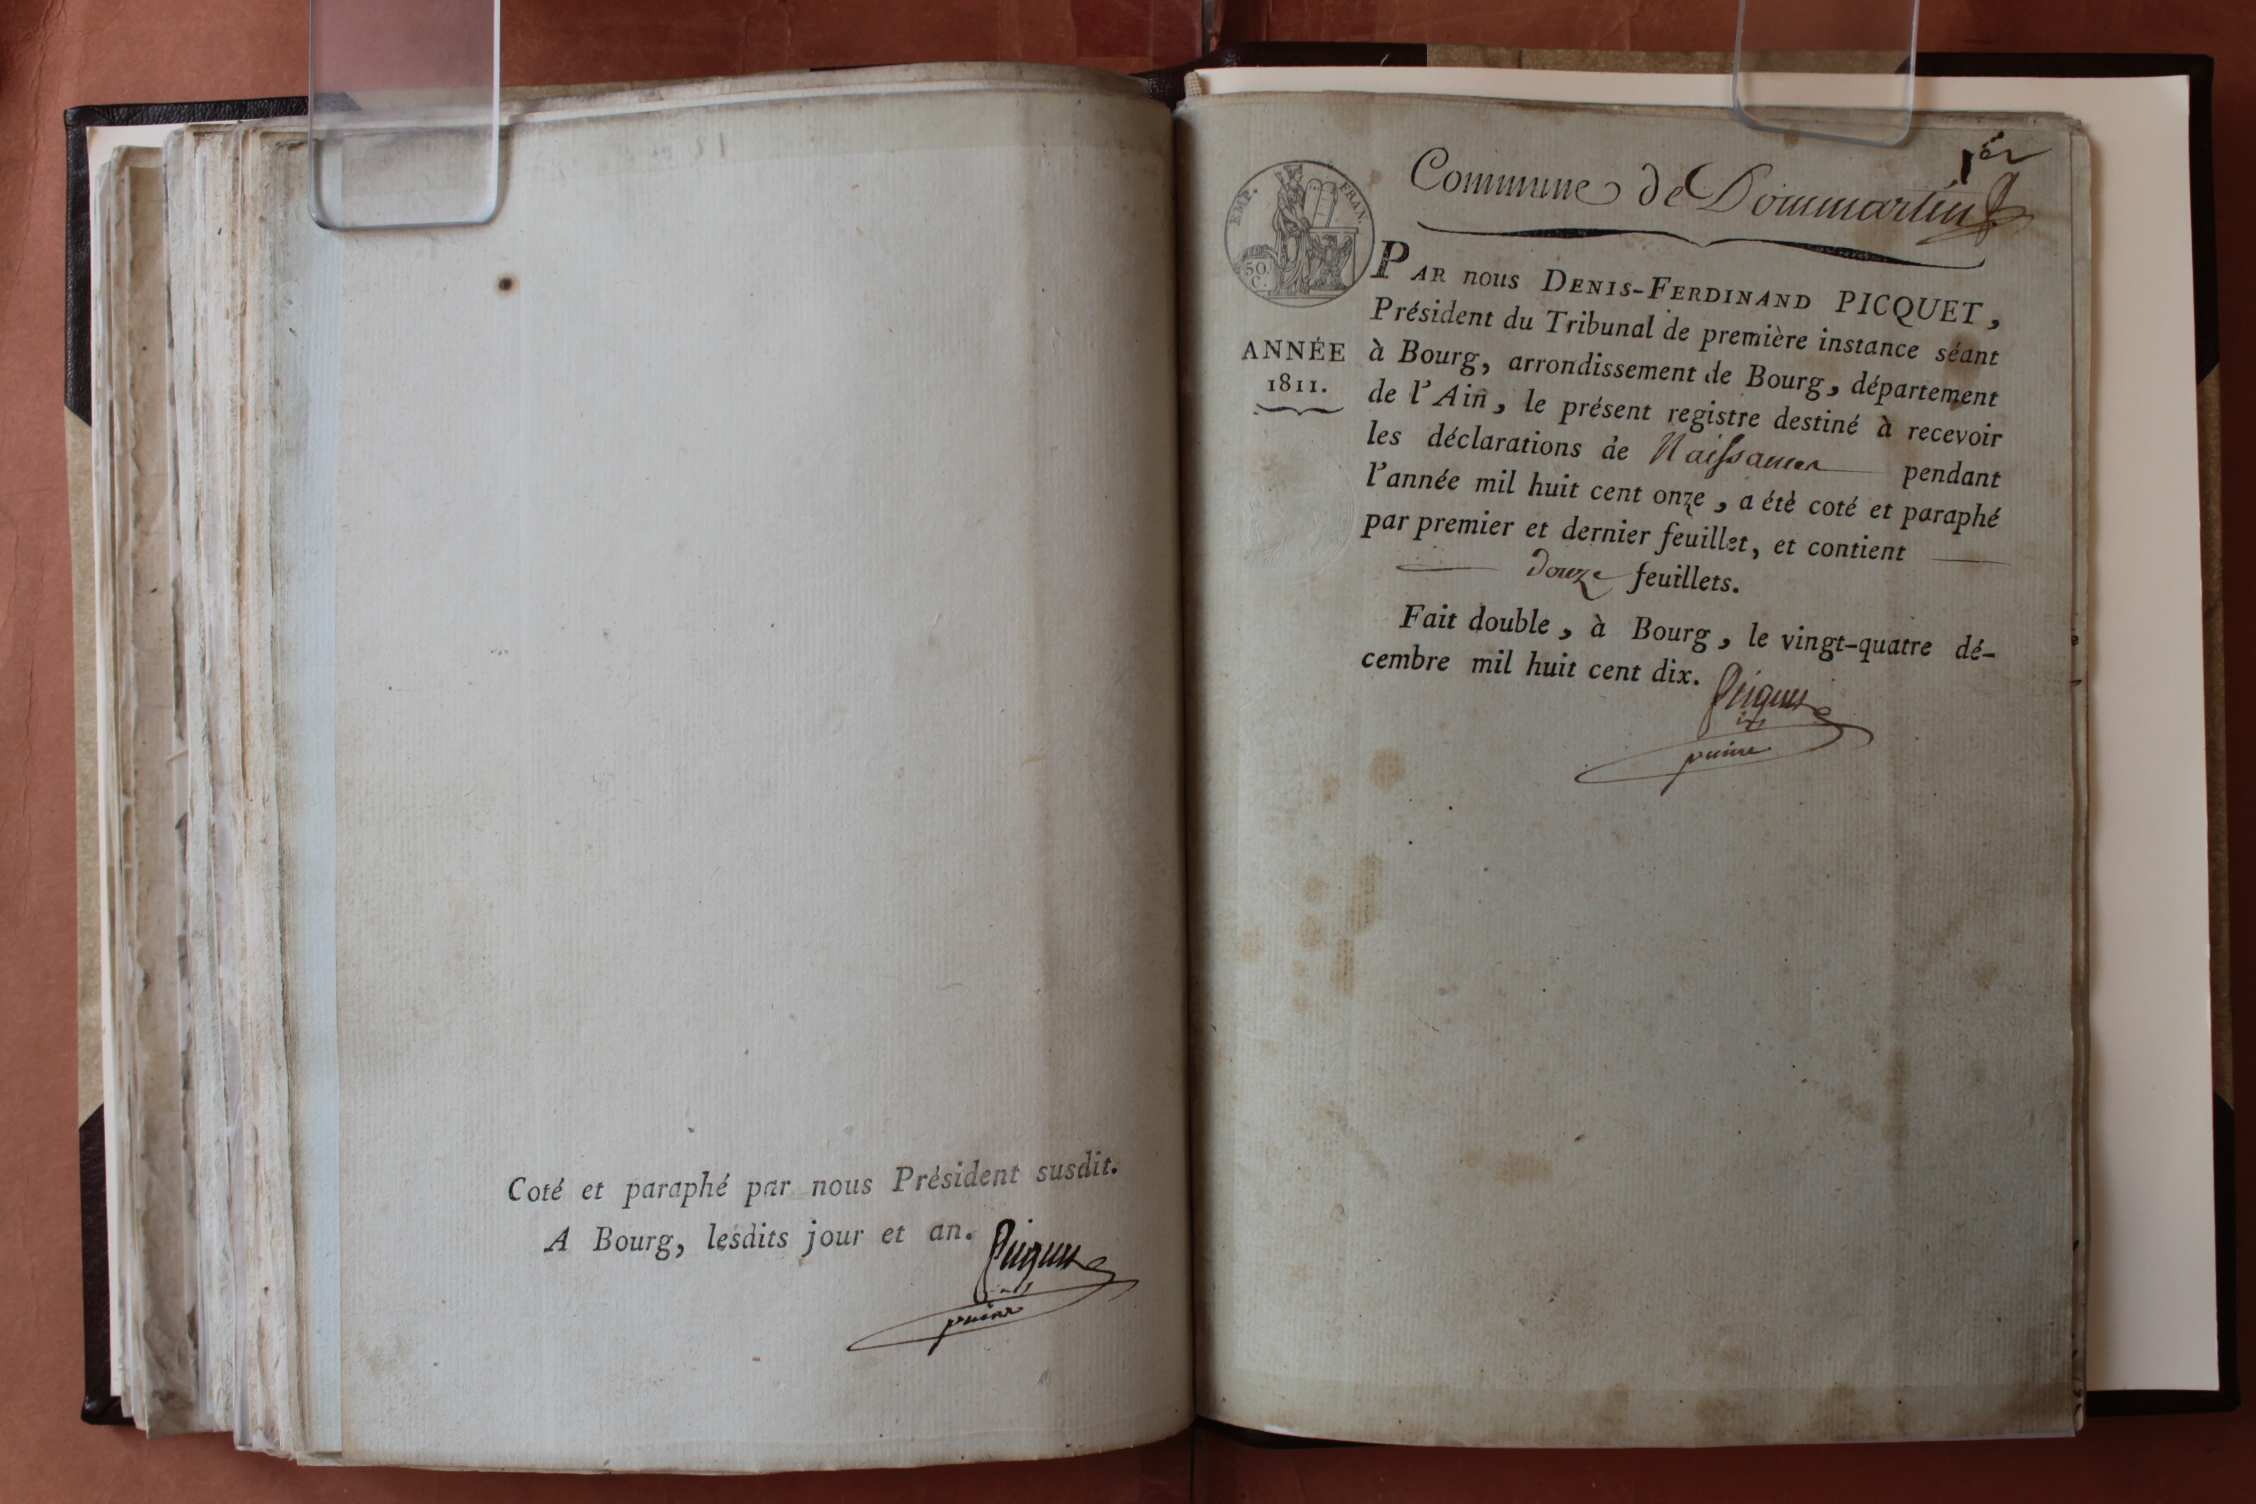 Coté et paraphé par nous Président susdit.
A Bourg, lesdits jour et an.
Picquet
1er
Commune de Dommartin
EMP. FRAN.
50
C.
PAR nous DENIS-FERDINAND PICQUET,
Président du Tribunal de première instance séant
ANNÉE
1811.
à Bourg, arrondissement de Bourg, département
de l'Ain, le présent registre destiné à recevoir
les déclarations de Naissances pendant
l'année mil huit cent onze, a été coté et paraphé
par premier et dernier feuillet, et contient
douze feuillets.
Fait double, à Bourg, le vingt-quatre dé-
cembre mil huit cent dix.
Picquet